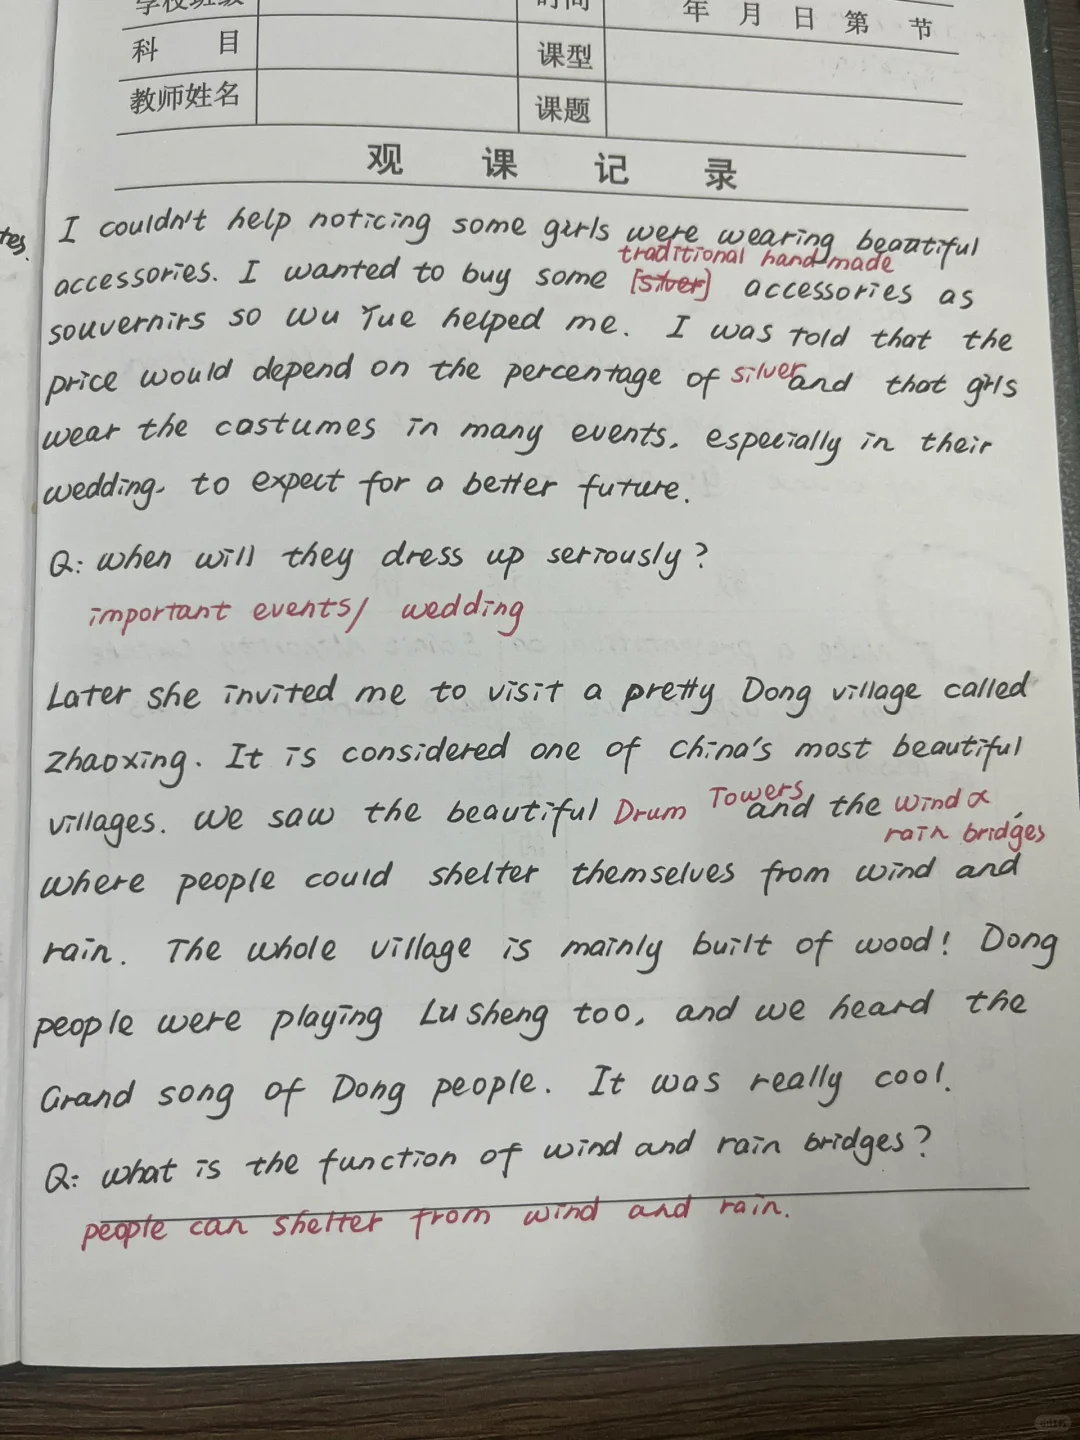 学校班级 时间 年 月 日 第 节
科 目 课型
教师姓名 课题
观 课 记 录
tes.
I couldn't help noticing some girls were wearing beautiful
traditional handmade
accessories. I wanted to buy some [silver] accessories as
souvernirs so Wu Yue helped me. I was told that the
price would depend on the percentage of silver and that girls
wear the costumes in many events, especially in their
wedding, to expect for a better future.
Q: when will they dress up seriously?
important events/ wedding
Later she invited me to visit a pretty Dong village called
Zhaoxing. It is considered one of China's most beautiful
villages. We saw the beautiful Drum Towers and the wind &
rain bridges,
where people could shelter themselves from wind and
rain. The whole village is mainly built of wood! Dong
people were playing Lu Sheng too, and we heard the
Grand song of Dong people. It was really cool.
Q: what is the function of wind and rain bridges?
people can shelter from wind and rain.
小红书